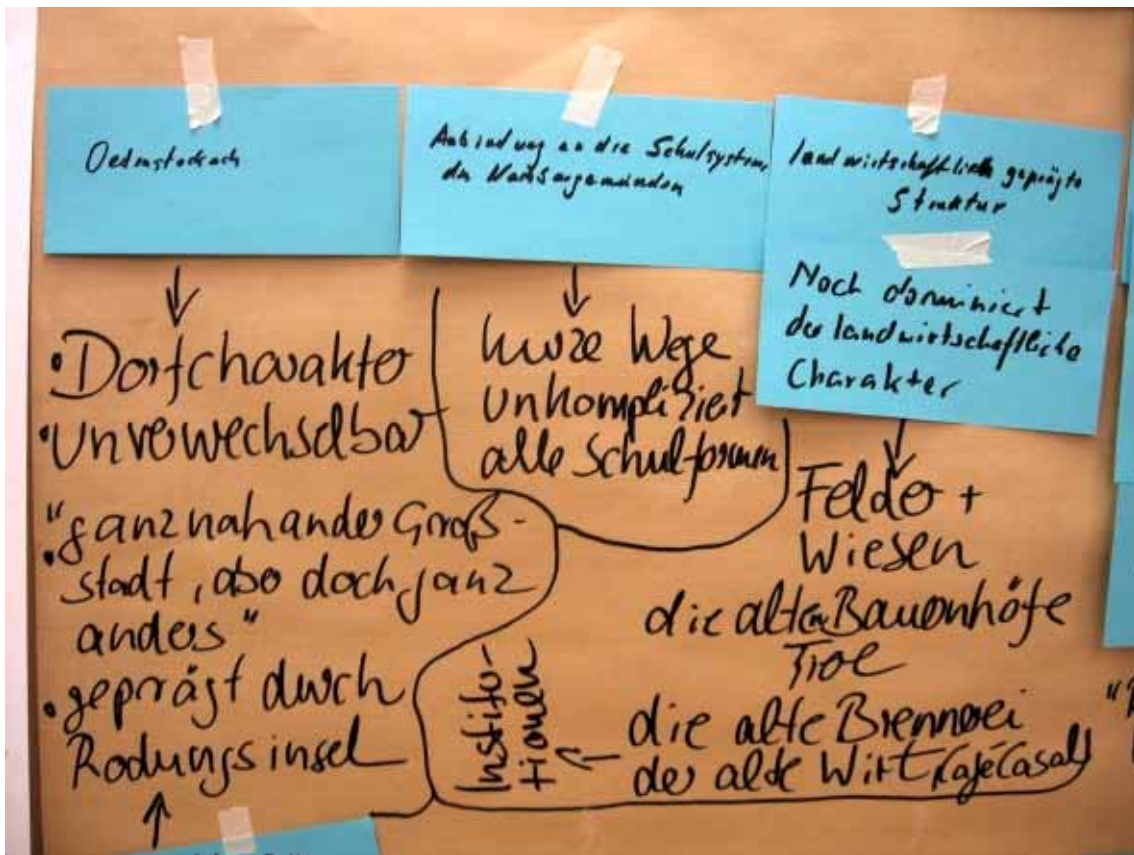 Oedenstockach
Anbindung an die Schulsysteme
der Nachbargemeinden
landwirtschaftlich geprägte
Struktur
Noch dominiert
der landwirtschaftliche
Charakter
• Dorfcharakter
• unverwechselbar
• "ganz nah an der Groß-
stadt, aber doch ganz
anders"
• geprägt durch
Rodungsinsel
kurze Wege
unkompliziert
alle Schulformen
Felder +
Wiesen
die alten Bauernhöfe
Tiere
die alte Brennerei
der alte Wirt (Café Casal)
Institu-
tionen